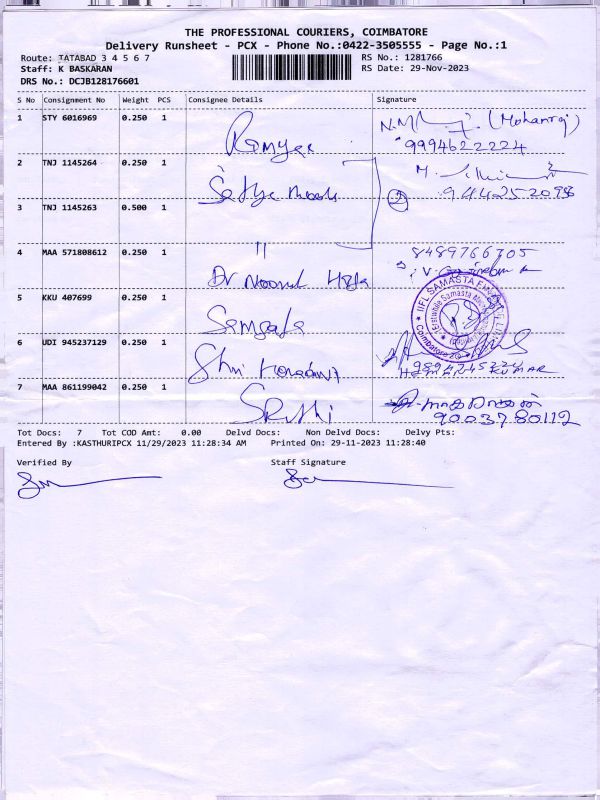 THE PROFESSIONAL COURIERS, COIMBATORE
Delivery Runsheet - PCX - Phone No.:0422-3505555 - Page No.:1
Route: TATABAD 3 4 5 6 7
RS No.: 1281766
Staff: K BASKARAN
RS Date: 29-Nov-2023
DRS No.: DCJB128176601
S No Consignment No Weight PCS Consignee Details Signature
1 STY 6016969 0.250 1 Ramya (Mohanraj)
9994622224
2 TNJ 1145264 0.250 1 Sathya
944252098
3 TNJ 1145263 0.500 1 2
4 MAA 571808612 0.250 1 " 8489766705
Dr Noorul
5 KKU 407699 0.250 1
IIFL SAMASTA
Coimbatore
6 UDI 945237129 0.250 1 Shri
KUMAR
7 MAA 861199042 0.250 1 Sruthi
9003780112
Tot Docs: 7 Tot COD Amt: 0.00 Delvd Docs: Non Delvd Docs: Delvy Pts:
Entered By :KASTHURIPCX 11/29/2023 11:28:34 AM Printed On: 29-11-2023 11:28:40
Verified By Staff Signature